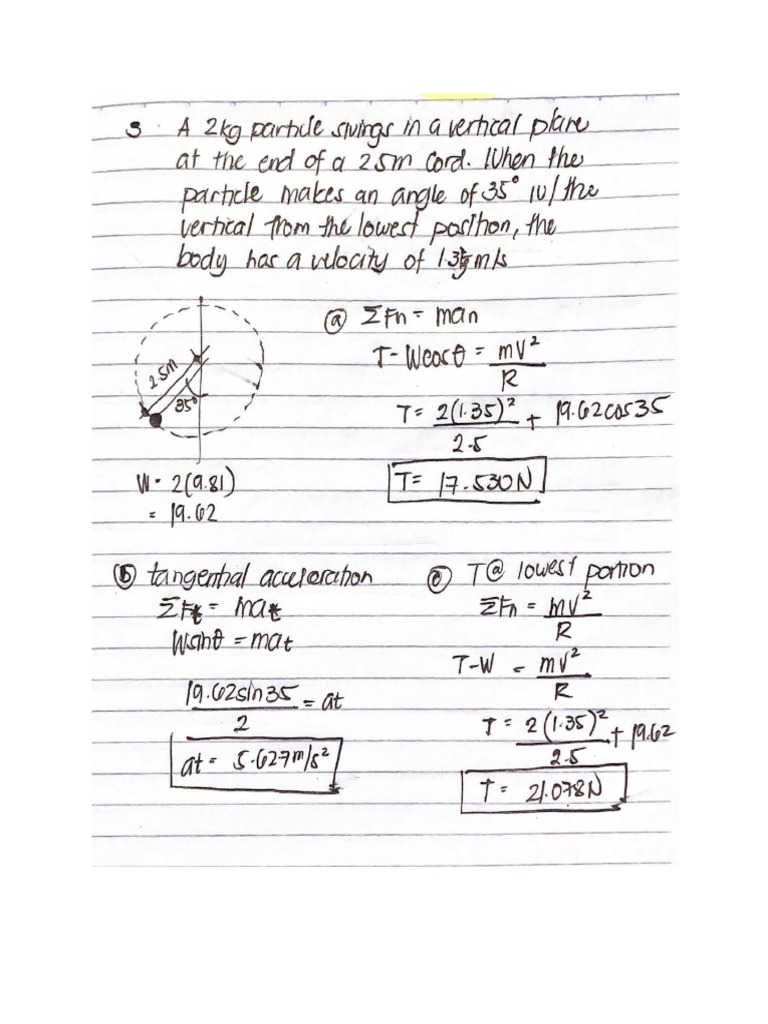 3. A 2kg particle swings in a vertical plane
at the end of a 2.5m cord. When the
particle makes an angle of 35° w/ the
vertical from the lowest position, the
body has a velocity of 1.35m/s
2.5m
35°
W = 2(9.81)
= 19.62
(a) ΣFn = man
T-Wcosθ = mv²/R
T = 2(1.35)²/2.5 + 19.62cos35
T = 17.530N
(b) tangential acceleration
ΣFt = mat
Wsinθ = mat
19.62sin35/2 = at
at = 5.627m/s²
(c) T@ lowest portion
ΣFn = mv²/R
T-W = mv²/R
T = 2(1.35)²/2.5 + 19.62
T = 21.078N